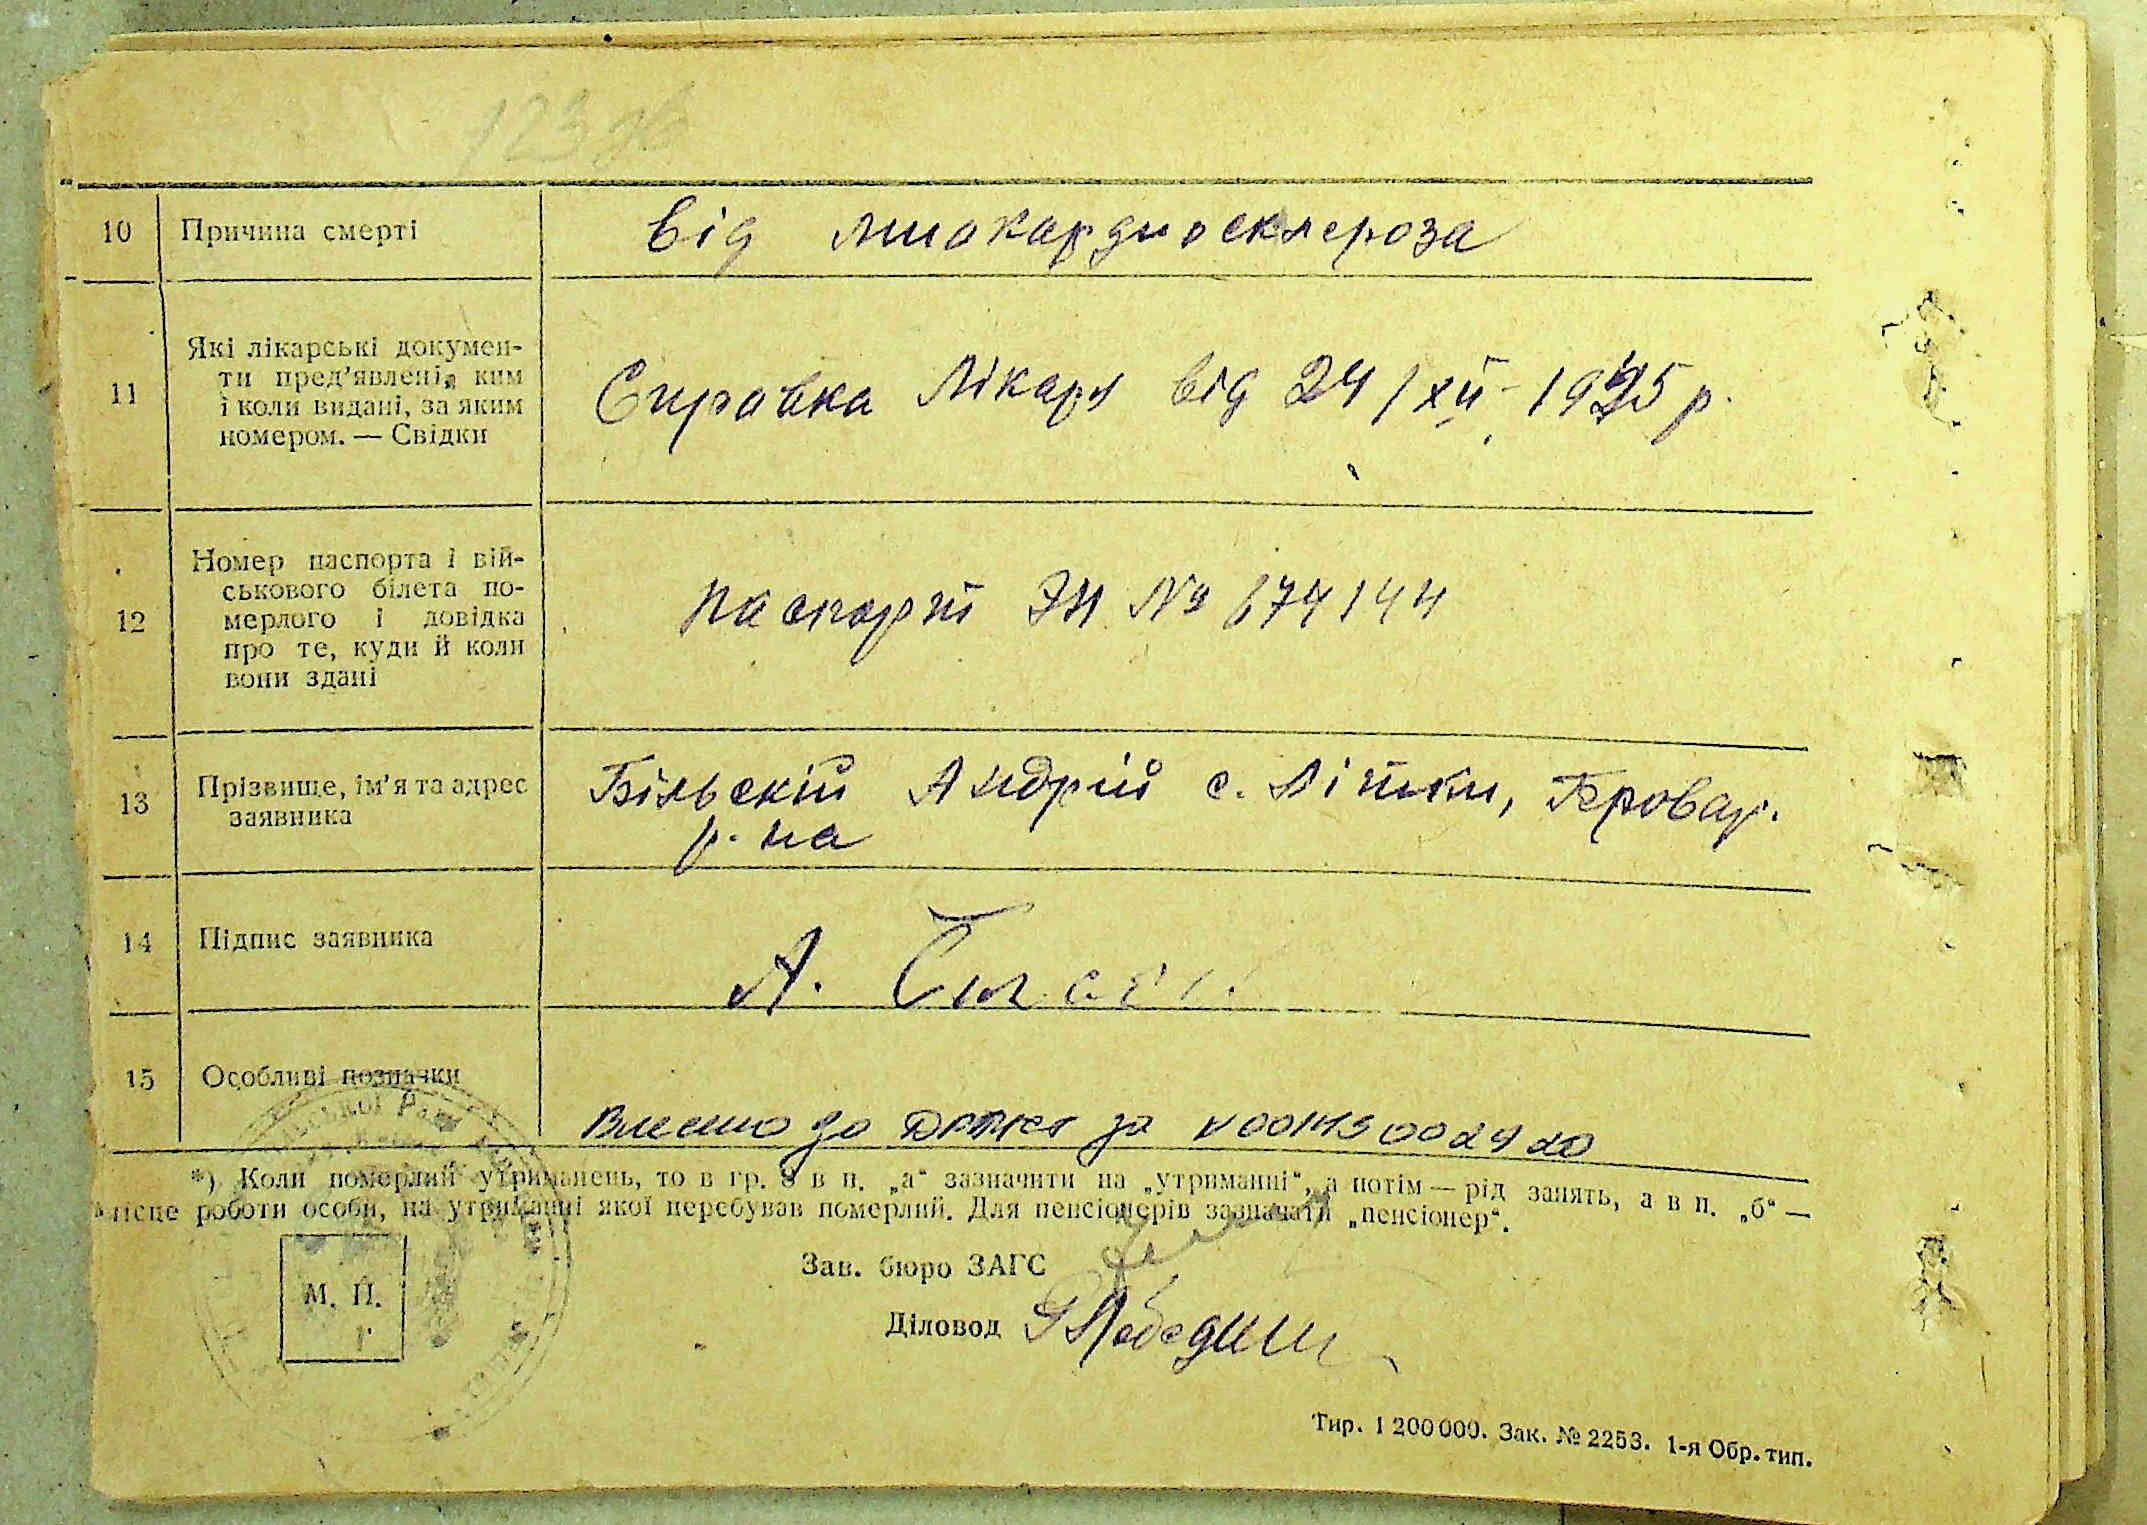 10 Причина смерті від миокардиосклероза
11 Які лікарські докумен-
ти пред’явлені, ким
і коли видані, за яким
номером. — Свідки
Справка Лікаря від 24/XII-1945 р.
12 Номер паспорта і вій-
ськового білета по-
мерлого і довідка
про те, куди й коли
вони здані
паспорт № 674144
13 Прізвище, ім’я та адрес
заявника
Більскій Андрій с. Літки, Бровар.
р-на
14 Підпис заявника
А.
15 Особливі позначки
Внесено до ДРАЦС за № 00145002420
*) Коли померлий утриманець, то в гр. 8 в п. „а“ зазначити на „утриманні“, а потім — рід занять, а в п. „б“ —
місце роботи особи, на утриманні якої перебував померлий. Для пенсіонерів зазначати „пенсіонер“.
Зав. бюро ЗАГС
М. П.
Діловод
Тир. 1 200 000. Зак. № 2253. 1-я Обр. тип.